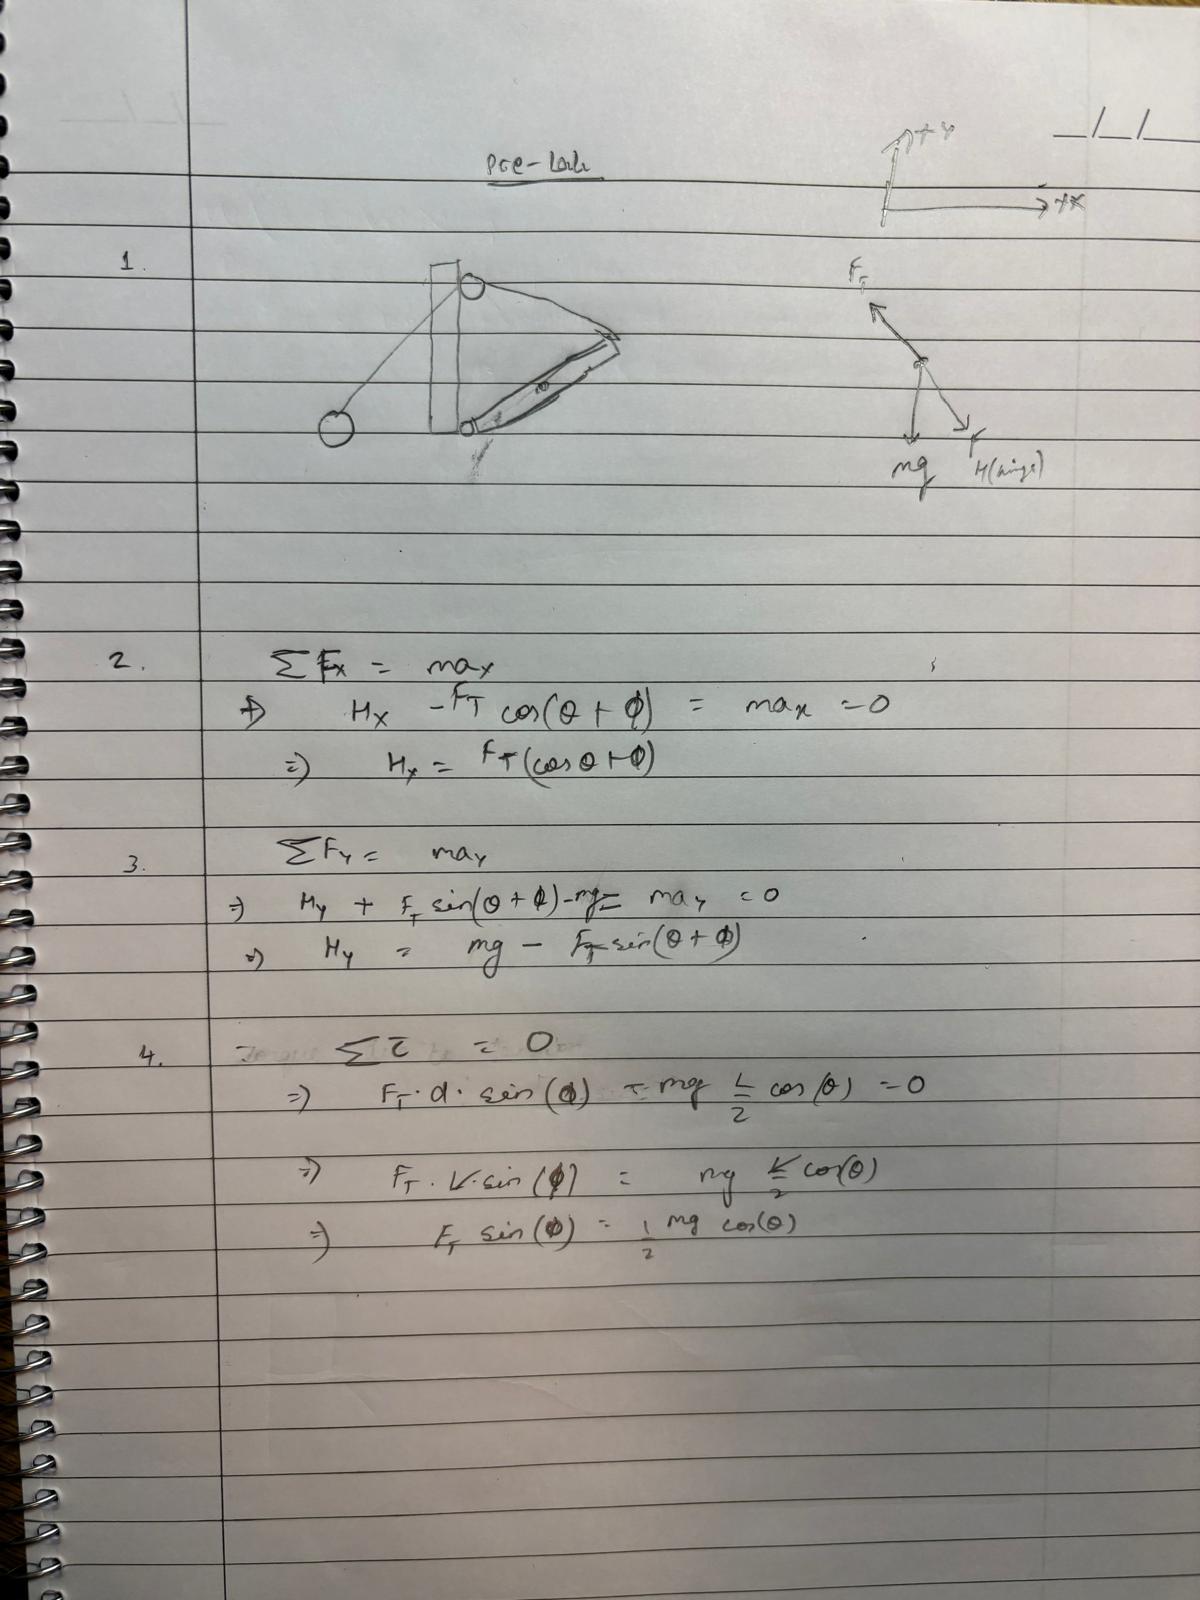 __/__/__
Pre-Lab
+Y
+X
1.
F_T
mg
F
H(hinge)
2. ΣFx = max
⇒ Hx - FT cos(θ + ϕ) = max = 0
⇒ Hx = FT(cosθ + ϕ)
3. ΣFy = may
⇒ Hy + FT sin(θ + ϕ) - mg = may = 0
⇒ Hy = mg - FT sin(θ + ϕ)
4. Στ = 0
⇒ FT · d · sin(ϕ) - mg L/2 cos(θ) = 0
⇒ FT · L · sin(ϕ) = mg L/2 cos(θ)
⇒ FT sin(ϕ) = 1/2 mg cos(θ)